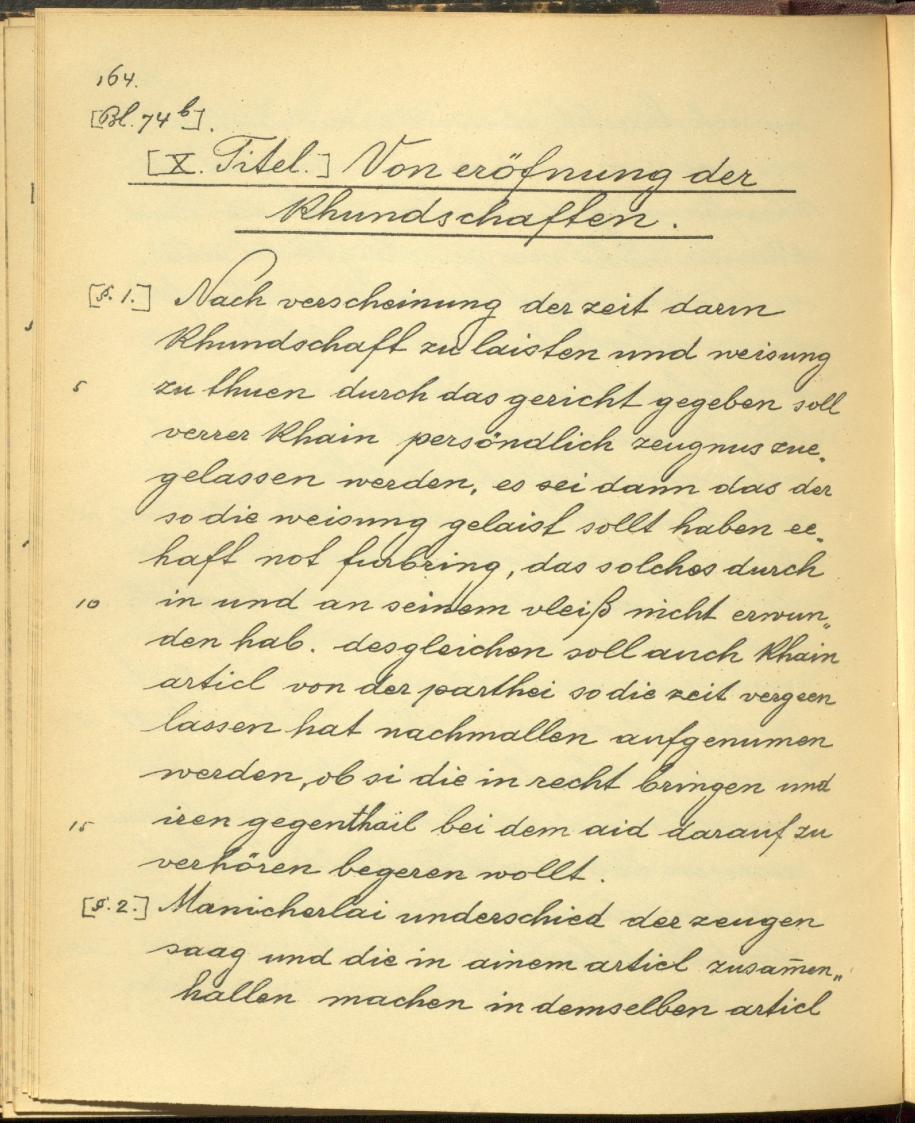 164.
[Bl. 74 b].
[X. Titel.] Von eröfnung der
Khundschaften.
[§. 1.] Nach verscheinung der zeit darin
Khundschaft zu laisten und weisung
5 zu thuen durch das gericht gegeben soll
verrer Khain persöndlich zeugnus zue„
gelassen werden, es sei dann das der
so die weisung gelaist sollt haben ee„
haft not furbring, das solches durch
10 in und an seinem vleiß nicht erwun„
den hab. desgleichen soll auch Khain
articl von der parthei so die zeit vergeen
lassen hat nachmallen aufgenumen
werden, ob si die in recht bringen und
15 iren gegenthail bei dem aid darauf zu
verhören begeren wollt.
[§. 2.] Manicherlai underschied der zeugen
saag und die in ainem articl zusam̄en„
hallen machen in demselben articl